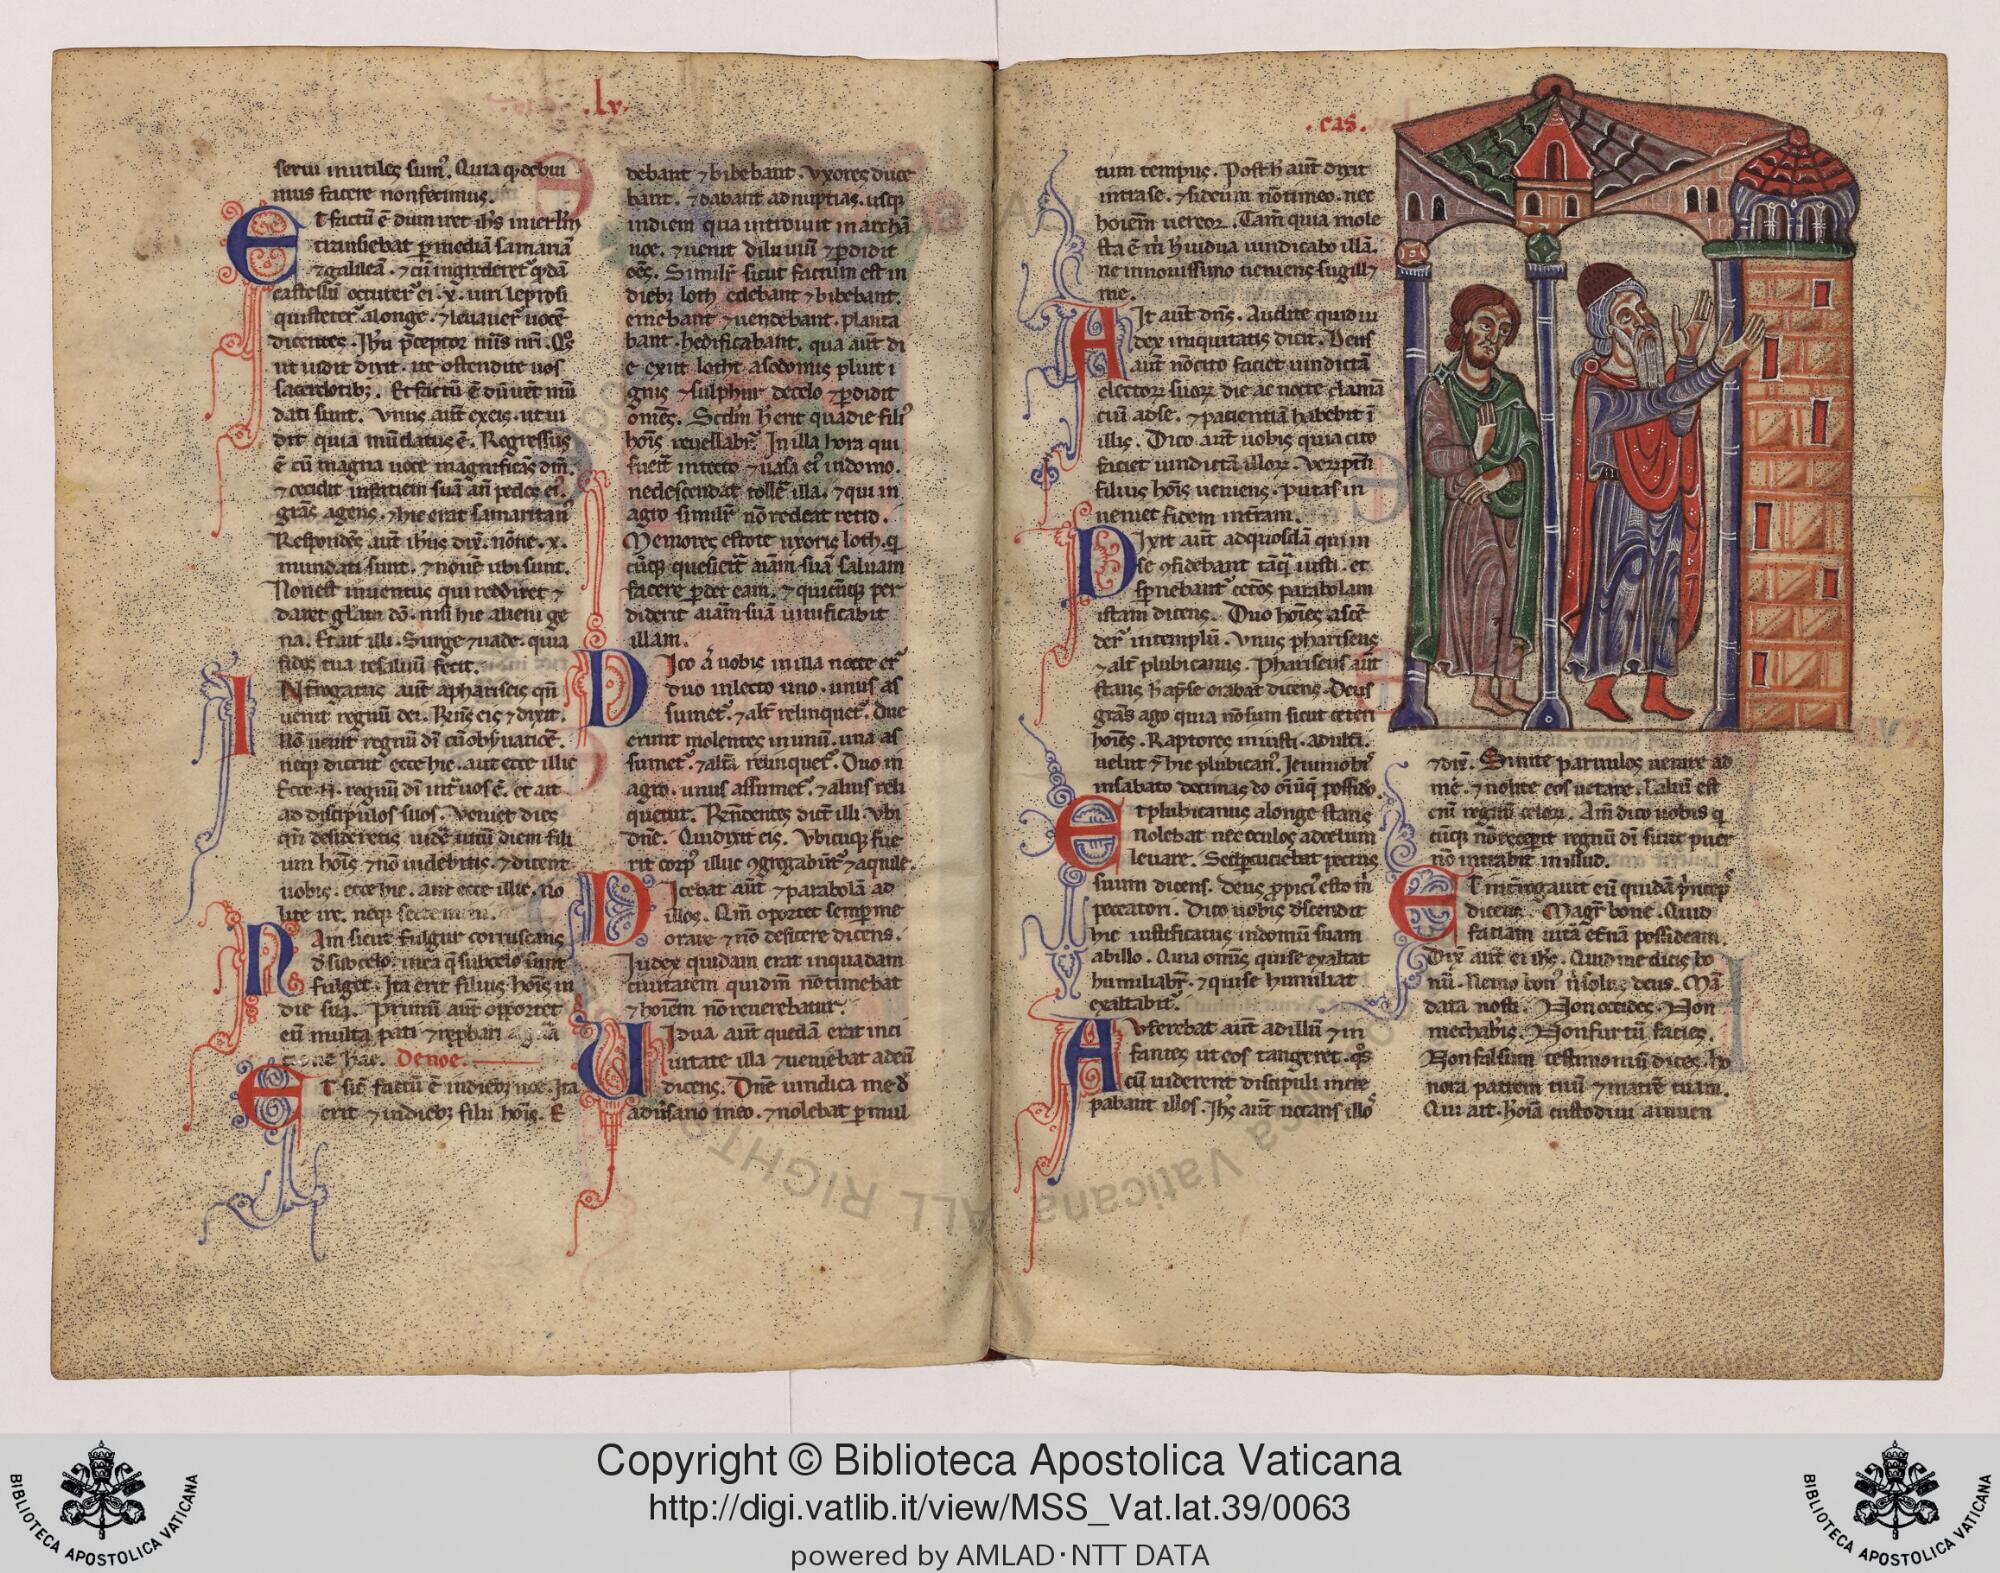 .lv.
serui inutiles sumꝰ. Quia qď debui
mus facere non fecimus.
Et factū ē dum iret ihs̄ in ierl̄m
transiebat ꝑ mediā samariā
⁊ galileā. ⁊ cū ingrederet᷒ q̄dā
castellū occurrer̄ ei .x. uiri leprosi
qui steter̄ a longe. ⁊ leuauer̄ uocē
dicentes. Ihū p̄ceptor
ut uidit dixit. ite ostendite uos
sacerdotibꝫ. Et factū ē dū irēt mū
dati sunt. Vnus aut̄ ex eis. ut ui
dit quia mūdatus ē. Regressus
ē cū magna uoce magnificās dm̄.
⁊ cecidit in faciem suā an̄ pedes eiꝰ.
grās agens. ⁊ hic erat samaritanꝰ
Respondēs aut̄ ihus dix̄. nōne .x.
mundati sunt. ⁊ nouē ubi sunt.
Non est inuentus qui rediret ⁊
daret gl̄am dō. nisi hic alieni ge
na. Et ait illi. Surge ⁊ uade. quia
fides tua te saluū fecit.
INt̄rogatus aut̄ a phariseis qn̄
uenit regnū dei. Rn̄s eis ⁊ dixit.
Nō uenit regnū dī cū obseruatiōe.
neqꝫ dicent ecce hic. aut ecce illic
Ecce .n. regnū dī int̄ uos ē. et ait
ad discipulos suos. Venient dies
qn̄ desideretis uidē unū diem fili
um hoīs ⁊ nō uidebitis. ⁊ dicent
uobis. ecce hic. aut ecce illic. no
lite ire. neqꝫ sectemini.
Nam sicut fulgur coruscans
de sub celo. in ea q̄ sub celo sunt
fulget. Ita erit filius hoīs in
die sua. Primū aut̄ oportet
eū multa pati ⁊ rep̄bari a
tione hac. De noe.
Et sic̄ factū ē in diebꝫ noe. Ita
erit ⁊ in diebꝫ filii hoīs. E
debant ⁊ bibebant. Vxores duce
bant. ⁊ dabant ad nuptias. usqꝫ
in diem qua intrauit in archā
noe. ⁊ uenit diluuiū ⁊ ꝑdidit
oēs. Similr̄ sicut factum est in
diebꝫ loth edebant ⁊ bibebant.
emebant ⁊ uendebant. planta
bant. hedificabant. qua aut̄ di
e exiit loth a sodomis pluit i
gnis ⁊ sulphur de celo ⁊ ꝑdidit
omēs. Scdm̄ h̄ erit qua die filiꝰ
hoīs reuelabit᷒. In illa hora qui
fuerit in tecto ⁊ uasa eiꝰ in domo.
ne descendat tollē illa. ⁊ qui in
agro similr̄ nō redeat retro.
Memores estote uxoris loth. q̄
cūqꝫ quesierit aīam suā saluam
facere ꝑdet eam. ⁊ quicūqꝫ per
diderit aīam suā uiuificabit
illam.
Dico uobis in illa nocte er̄
duo in lecto uno. unus as
sumet᷒. ⁊ alt̄ relinquet᷒. Due
erunt molentes in unū. una as
sumet᷒. ⁊ altā relinquet᷒. Duo in
agro. unus assumet᷒. ⁊ alius reli
quetur. Rn̄dentes dicūt illi. Vbi
dn̄e. Qui dixit eis. Vbicūqꝫ fue
rit corpꝰ illuc ꝯgregabūt᷒ ⁊ aquile.
Dicebat aut̄ ⁊ parabolā ad
illos. Qm̄ oportet semper
orare ⁊ nō deficere dicens.
Iudex quidam erat in quadam
ciuitatem qui dm̄ nō timebat
⁊ hoīem nō reuerebatur.
Vidua aut̄ quedā erat in ci
uitate illa ⁊ ueniebat ad eū
dicens. Dn̄e uindica me d̄
aduersario meo. ⁊ nolebat ꝑ mul
.cas. 59
tum tempus. Post h̄ aut̄ dixit
intra se. ⁊ si deum nō timeo. nec
hoīem uereor. Tam̄ quia mole
sta ē m̄ h̄ uidua uindicabo illā.
ne in nouissimo ueniens sugill⁊
me.
Ait aut̄ dn̄s. Audite quid iu
dex iniquitatis dicit. Deus
aut̄ nō cito faciet uindictā
electorꝝ suorꝝ die ac nocte clamā
ciū ad se. ⁊ pacientiā habebit ī
illis. Dico aut̄ uobis quia cito
faciet uindictā illorꝝ. Verūptn̄
filius hoīs ueniens. putas in
ueniet fidem in t̄ram.
Dixit aut̄ ad quosdā qui in
se ꝯfidebant tāq̄ iusti. et
sp̄nebant cet̄os parabolam
istam dicens. Duo hoīes ascē
der̄ in templū. Vnus phariseus
⁊ alt̄ plubicanus. Phariseus aut̄
stans h̄ ap̄se orabat dicens. Deus
grās ago quia nō sum sicut ceteri
hoīes. Raptores iniusti. adulti.
uelut ⁊ hic plubicanꝰ. Ieiuno bis
in sabato decimas do oīuꝫ q̄ possido.
Et plubicanus a longe stans
nolebat nec oculos ad celum
leuare. Sed ꝑcuciebat pectus
suum dicens. Deus ꝓpiciꝰ esto m̄
peccatori. Dico uobis descendit
hic iustificatus in domū suam
ab illo. Quia omīs qui se exaltat
humiliabit᷒. ⁊ qui se humiliat
exaltabit᷒.
Afferebat aut̄ ad illū ⁊ in
fantes ut eos tangeret. q̄s
cū uiderent discipuli incre
pabant illos. Ihs̄ aut̄ uocans illos
⁊ dix̄. Sinite paruulos uenire ad
me. ⁊ nolite eos uetare. Taliū est
eni regnū celorꝝ. Am̄ dico uobis q
cūqꝫ nō receperit regnū dī sicut puer
nō intrabit in illud.
Et int̄rogauit eū quidā p̄nceps
dicens. Magr̄ bone. Quid
faciam uitā et̄nā possideam.
Dix̄ aut̄ ei ihs̄. Quid me dicis bo
nū. Nemo bonꝰ n̄ solus deus. Mā
data nosti. Non occides. Non
mechaberis. Non furtū facies.
Non falsum testimoniū dices. ho
nora patrem tuū ⁊ matrē tuam.
Qui ait. h̄ oīa custodiui a iuuen
Copyright © Biblioteca Apostolica Vaticana
http://digi.vatlib.it/view/MSS_Vat.lat.39/0063
powered by AMLAD·NTT DATA
BIBLIOTECA APOSTOLICA VATICANA
BIBLIOTECA APOSTOLICA VATICANA